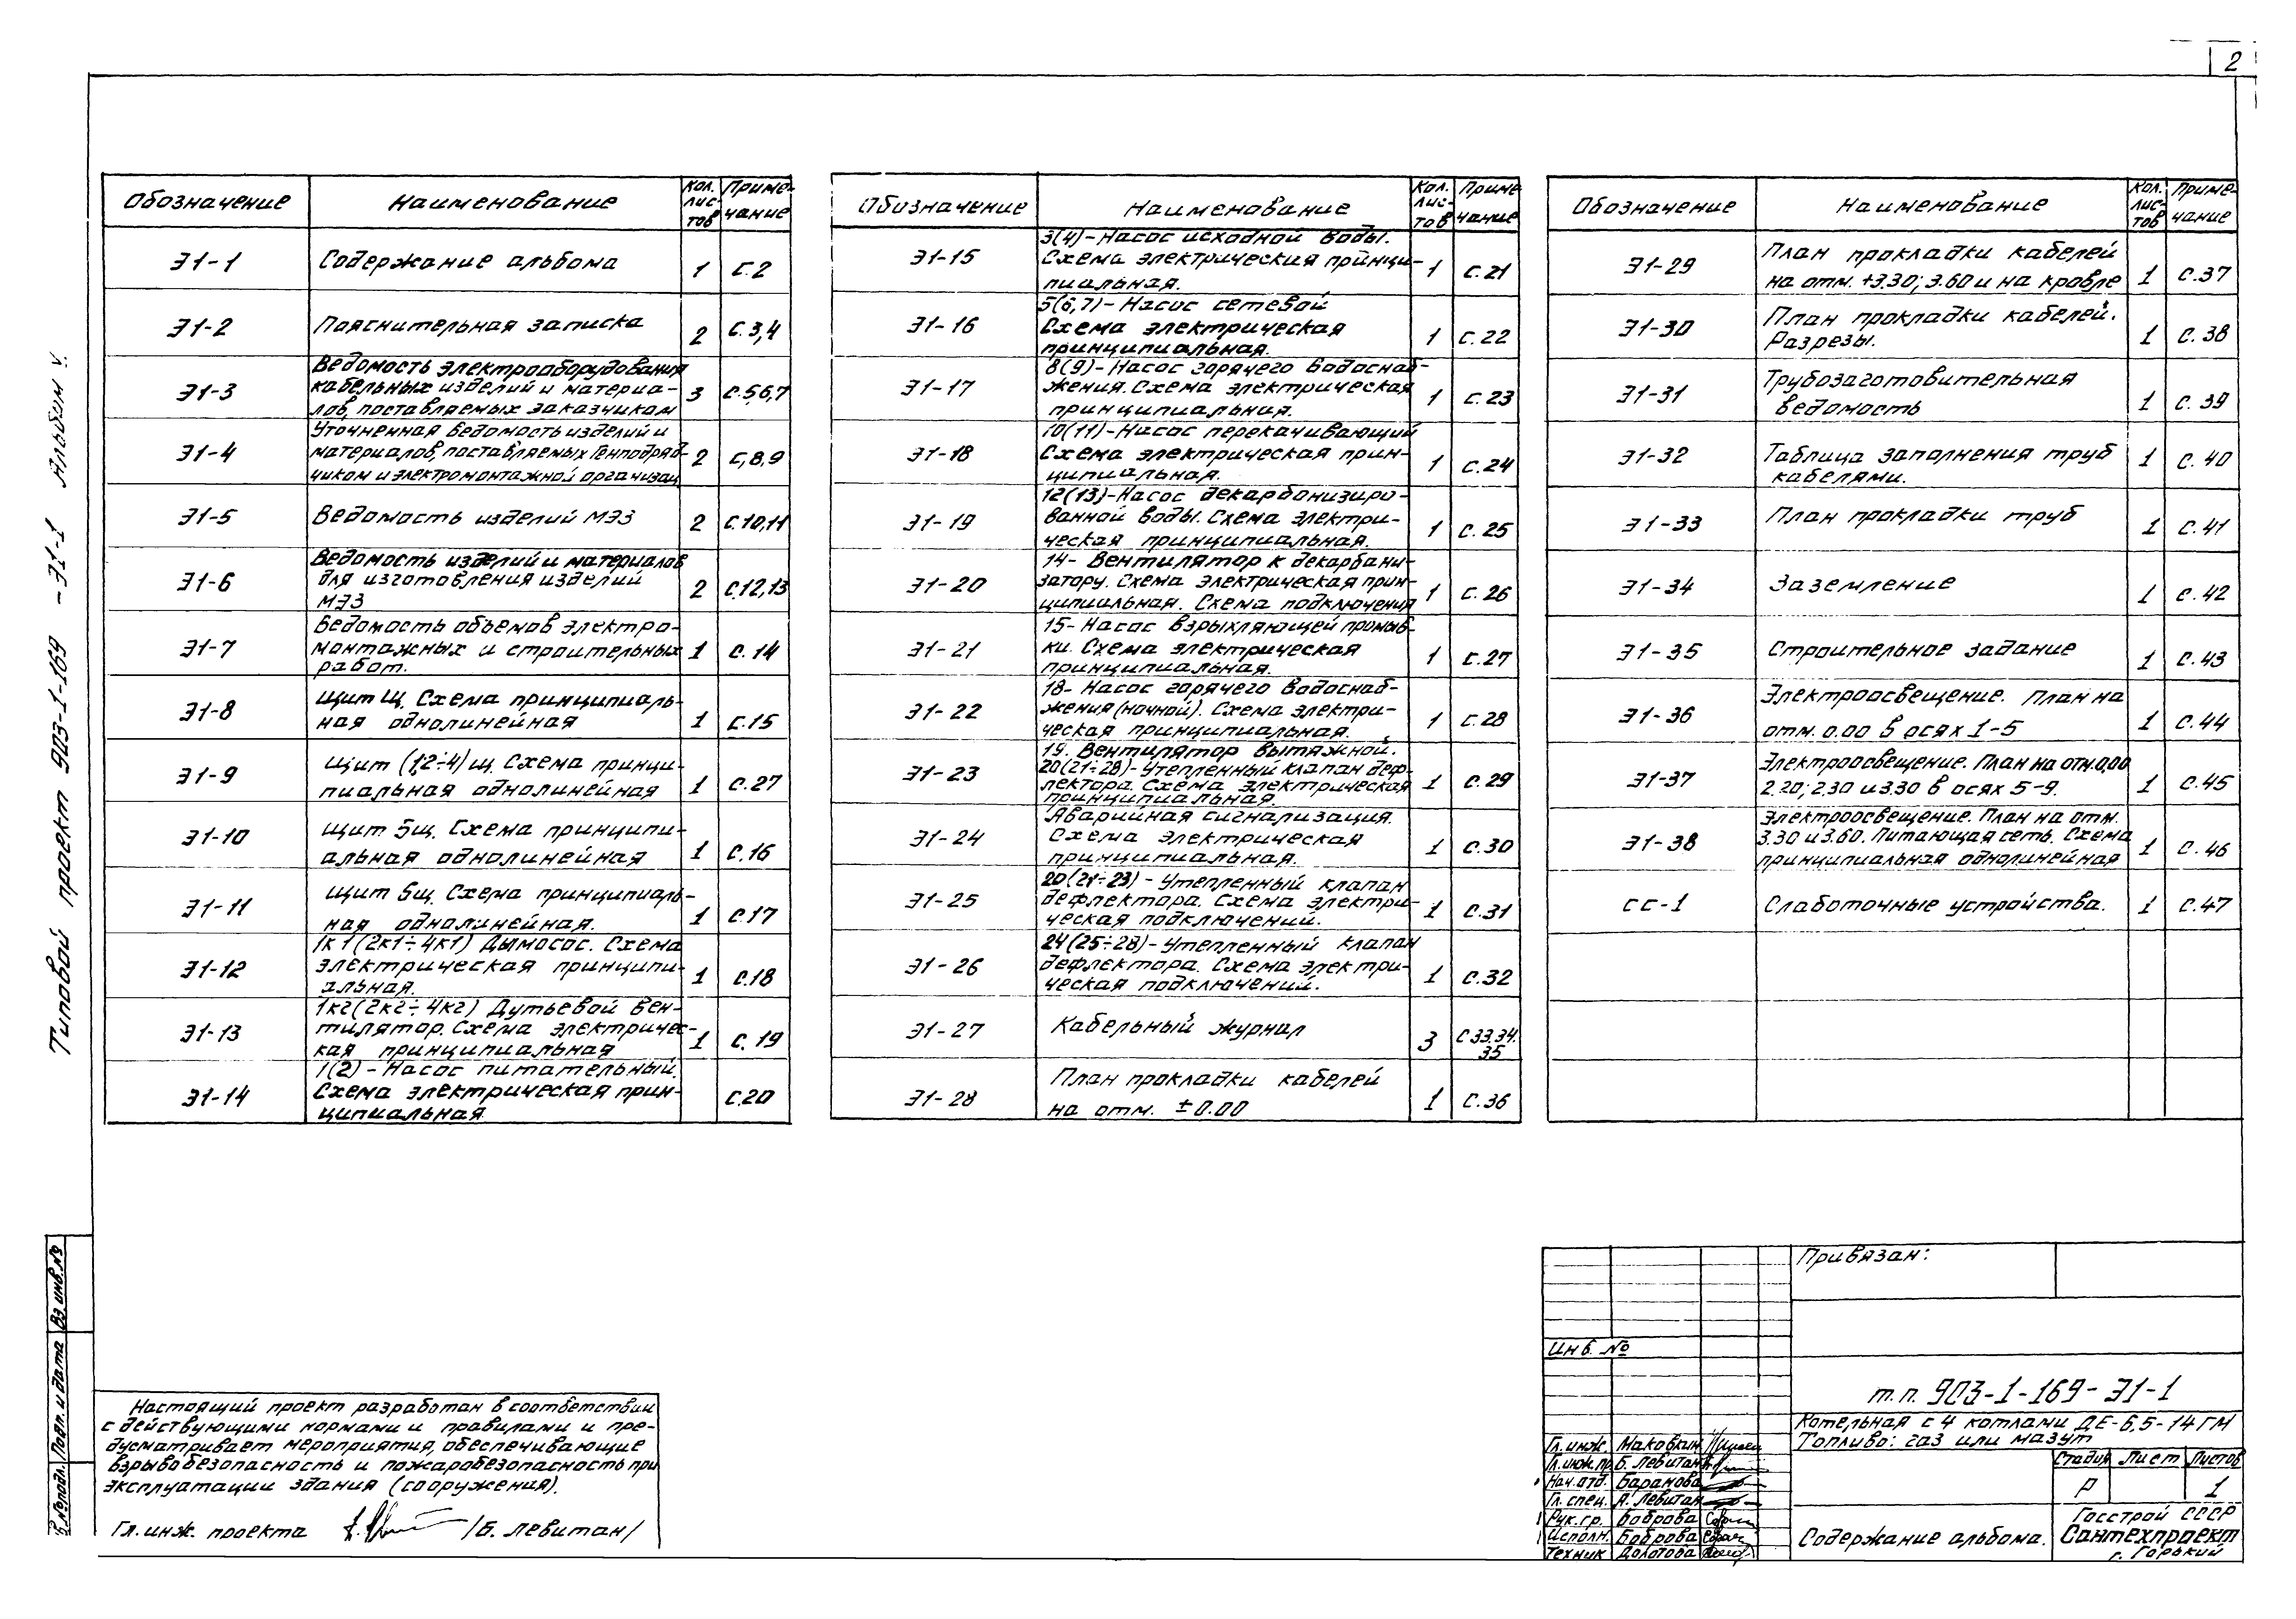 2
Типовой проект 903-1-169 -Э1-1 Альбом V.
Обозначение Наименование Кол. лис- тов Приме- чание
Э1-1 Содержание альбома 1 с.2
Э1-2 Пояснительная записка 2 с.3,4
Э1-3 Ведомость электрооборудования
кабельных изделий и материа-
лов, поставляемых заказчиком 3 с.5,6,7
Э1-4 Уточненная ведомость изделий и
материалов, поставляемых генподряд-
чиком и электромонтажной организац. 2 с,8,9
Э1-5 Ведомость изделий МЭЗ 2 с.10,11
Э1-6 Ведомость изделий и материалов
для изготовления изделий
МЭЗ 2 с.12,13
Э1-7 Ведомость объемов электро-
монтажных и строительных
работ. 1 с.14
Э1-8 Щит Щ. Схема принципиаль-
ная однолинейная 1 с.15
Э1-9 Щит (1,2÷4)щ. Схема принци-
пиальная однолинейная 1 с.27
Э1-10 Щит 5щ. Схема принципи-
альная однолинейная 1 с.16
Э1-11 Щит 5щ. Схема принципиаль-
ная однолинейная. 1 с.17
Э1-12 1к1(2к1÷4к1) Дымосос. Схема
электрическая принципи-
альная. 1 с.18
Э1-13 1к2(2к2÷4к2) Дутьевой вен-
тилятор. Схема электричес-
кая принципиальная 1 с.19
Э1-14 1(2)-Насос питательный.
Схема электрическая прин-
ципиальная. с.20
Обозначение Наименование Кол. лис- тов Приме чание
Э1-15 3(4)-Насос исходной воды.
Схема электрическия принци-
пиальная. 1 с.21
Э1-16 5(6,7)-Насос сетевой
Схема электрическая
принципиальная. 1 с.22
Э1-17 8(9)-Насос горячего водоснаб-
жения. Схема электрическая
принципиальная. 1 с.23
Э1-18 10(11)-Насос перекачивающий
Схема электрическая прин-
ципиальная. 1 с.24
Э1-19 12(13)-Насос декарбонизиро-
ванной воды. Схема электри-
ческая принципиальная. 1 с.25
Э1-20 14- Вентилятор к декарбани-
затору. Схема электрическая прин-
ципиальная. Схема подключения 1 с.26
Э1-21 15-Насос взрыхляющей промыв-
ки. Схема электрическая
принципиальная. 1 с.27
Э1-22 18-Насос горячего водоснаб-
жения (ночной). Схема электри-
ческая принципиальная. 1 с.28
Э1-23 19. Вентилятор вытяжной.
20(21÷28)-Утепленный клапан деф-
лектора. Схема электрическая
принципиальная. 1 с.29
Э1-24 Аварийная сигнализация.
Схема электрическая
принципиальная. 1 с.30
Э1-25 20(21÷23)-Утепленный клапан
дефлектора. Схема электри-
ческая подключений. 1 с.31
Э1-26 24(25÷28)-Утепленный клапан
дефлектора. Схема электри-
ческая подключений. 1 с.32
Э1-27 Кабельный журнал 3 с 33.34.
35
Э1-28 План прокладки кабелей
на отм. ±0.00 1 с.36
Обозначение Наименование Кол. лис- тов Приме- чание
Э1-29 План прокладки кабелей
на отм. +3.30; 3.60 и на кровле 1 с.37
Э1-30 План прокладки кабелей.
Разрезы. 1 с.38
Э1-31 Трубозаготовительная
ведомость 1 с.39
Э1-32 Таблица заполнения труб
кабелями. 1 с.40
Э1-33 План прокладки труб 1 с.41
Э1-34 Заземление 1 с.42
Э1-35 Строительное задание 1 с.43
Э1-36 Электроосвещение. План на
отм. 0.00 в осях 1-5 1 с.44
Э1-37 Электроосвещение. План на отм. 0,00
2.20; 2.30 и 3.30 в осях 5-9. 1 с.45
Э1-38 Электроосвещение. План на отм.
3.30 и 3.60. Питающая сеть. Схема
принципиальная однолинейная 1 с.46
СС-1 Слаботочные устройства. 1 с.47
Настоящий проект разработан в соответствии
с действующими нормами и правилами и пре-
дусматривает мероприятия, обеспечивающие
взрывобезопасность и пожаробезопасность при
эксплуатации здания (сооружения).
Гл. инж. проекта /Б. Левитан/
Подп. и дата Вз. инв. №
Привязан:
Инв. №
т.п. 903-1-169-Э1-1
Котельная с 4 котлами ДЕ-6,5-14ГМ
Топливо: газ или мазут
Гл. инж. Маковкин
Гл. инж. пр. Б. Левитан
Нач. отд. Баранова
Гл. спец. А. Левитан
Рук. гр. Боброва
Исполн. Боброва
Техник Долотова
Стадия Лист Листов
Р 1
Содержание альбома.
Госстрой СССР
Сантехпроект
г. Горький